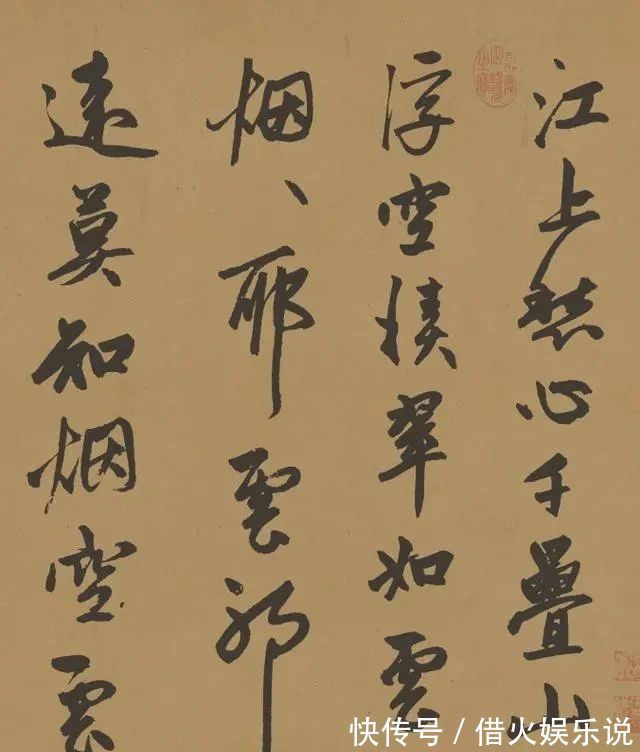 江上愁心千疊山
浮空積翠如雲
烟、耶雲耶
遠莫知烟空雲
快传号 / 借火娱乐说